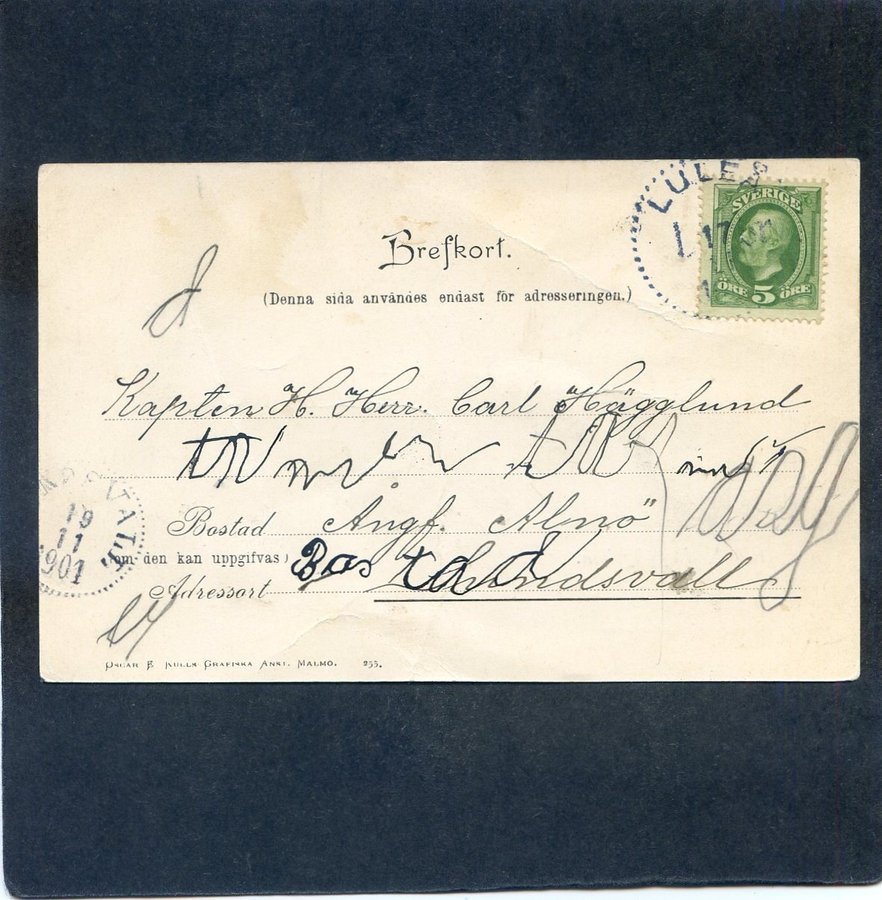 LULEÅ
17
SVERIGE
ÖRE 5 ÖRE
Brefkort.
(Denna sida användes endast för adresseringen.)
Kapten H. Herr. Carl Hägglund
Bostad Ångf. "Alnö"
(om den kan uppgifvas)
Bostad
Adressort Sundsvall
NDSVALL
19
11
1901
OSCAR B. KULLS GRAFISKA ANST. MALMÖ. 255.